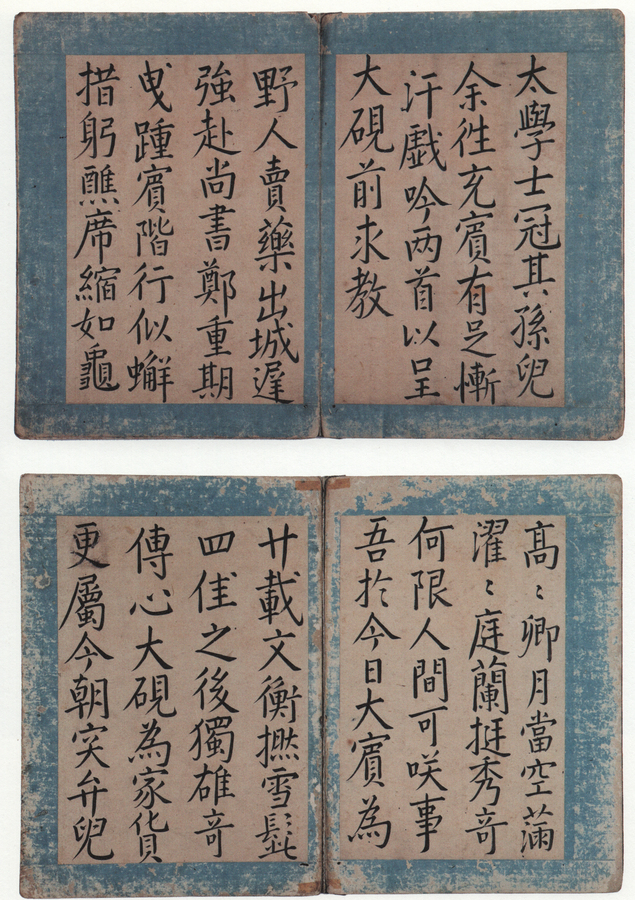 太學士冠其孫兒
余徃充賓有足慚
汗戲吟两首以呈
大硯前求教
野人賣藥出城遲
強赴尚書鄭重期
曳踵賓階行似蠏
措躬醮席縮如龜
高〻卿月當空滿
濯〻庭蘭挺秀竒
何限人間可咲事
吾於今日大賓為
廿載文衡撚雪髭
四佳之後獨雄竒
傳心大硯為家貨
更屬今朝突弁兒